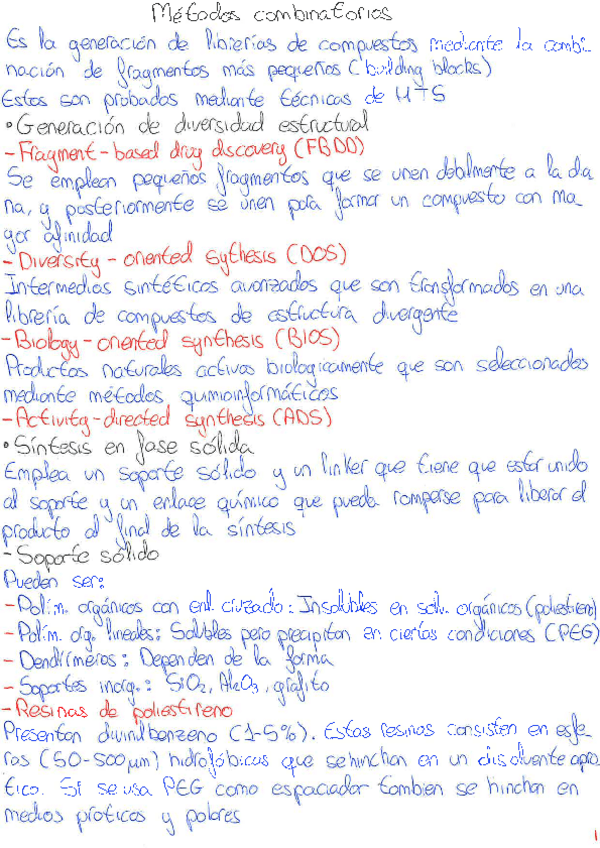 Métodos combinatorios
Es la generación de librerías de compuestos mediante la combi-
nación de fragmentos más pequeños (building blocks)
Estos son probados mediante técnicas de HTS
• Generación de diversidad estructural
- Fragment-based drug discovery (FBDD)
Se emplean pequeños fragmentos que se unen debilmente a la dia
na, y posteriormente se unen para formar un compuesto con ma
yor afinidad
- Diversity-oriented sythesis (DOS)
Intermedios sintéticos avanzados que son transformados en una
librería de compuestos de estructura divergente
- Biology-oriented synthesis (BIOS)
Productos naturales activos biologicamente que son seleccionados
mediante métodos quimioinformáticos
- Activity-directed synthesis (ADS)
• Síntesis en fase sólida
Emplea un soporte sólido y un linker que tiene que estar unido
al soporte y un enlace químico que pueda romperse para liberar el
producto al final de la síntesis
- Soporte sólido
Pueden ser:
- Polím. orgánicos con enl. cruzado: Insolubles en solv. orgánicos (poliestireno)
- Polím. org. lineales: Solubles pero precipitan en ciertas condiciones (PEG)
- Dendrímeros: Dependen de la forma
- Soportes inorg.: SiO2, Al2O3, grafito
- Resinas de poliestireno
Presentan divinilbenzeno (1-5%). Estas resinas consisten en esfe
ras (50-500 µm) hidrofóbicas que se hinchan en un disolvente apro
tico. Si se usa PEG como espaciador tambien se hinchan en
medios proticos y polares
1